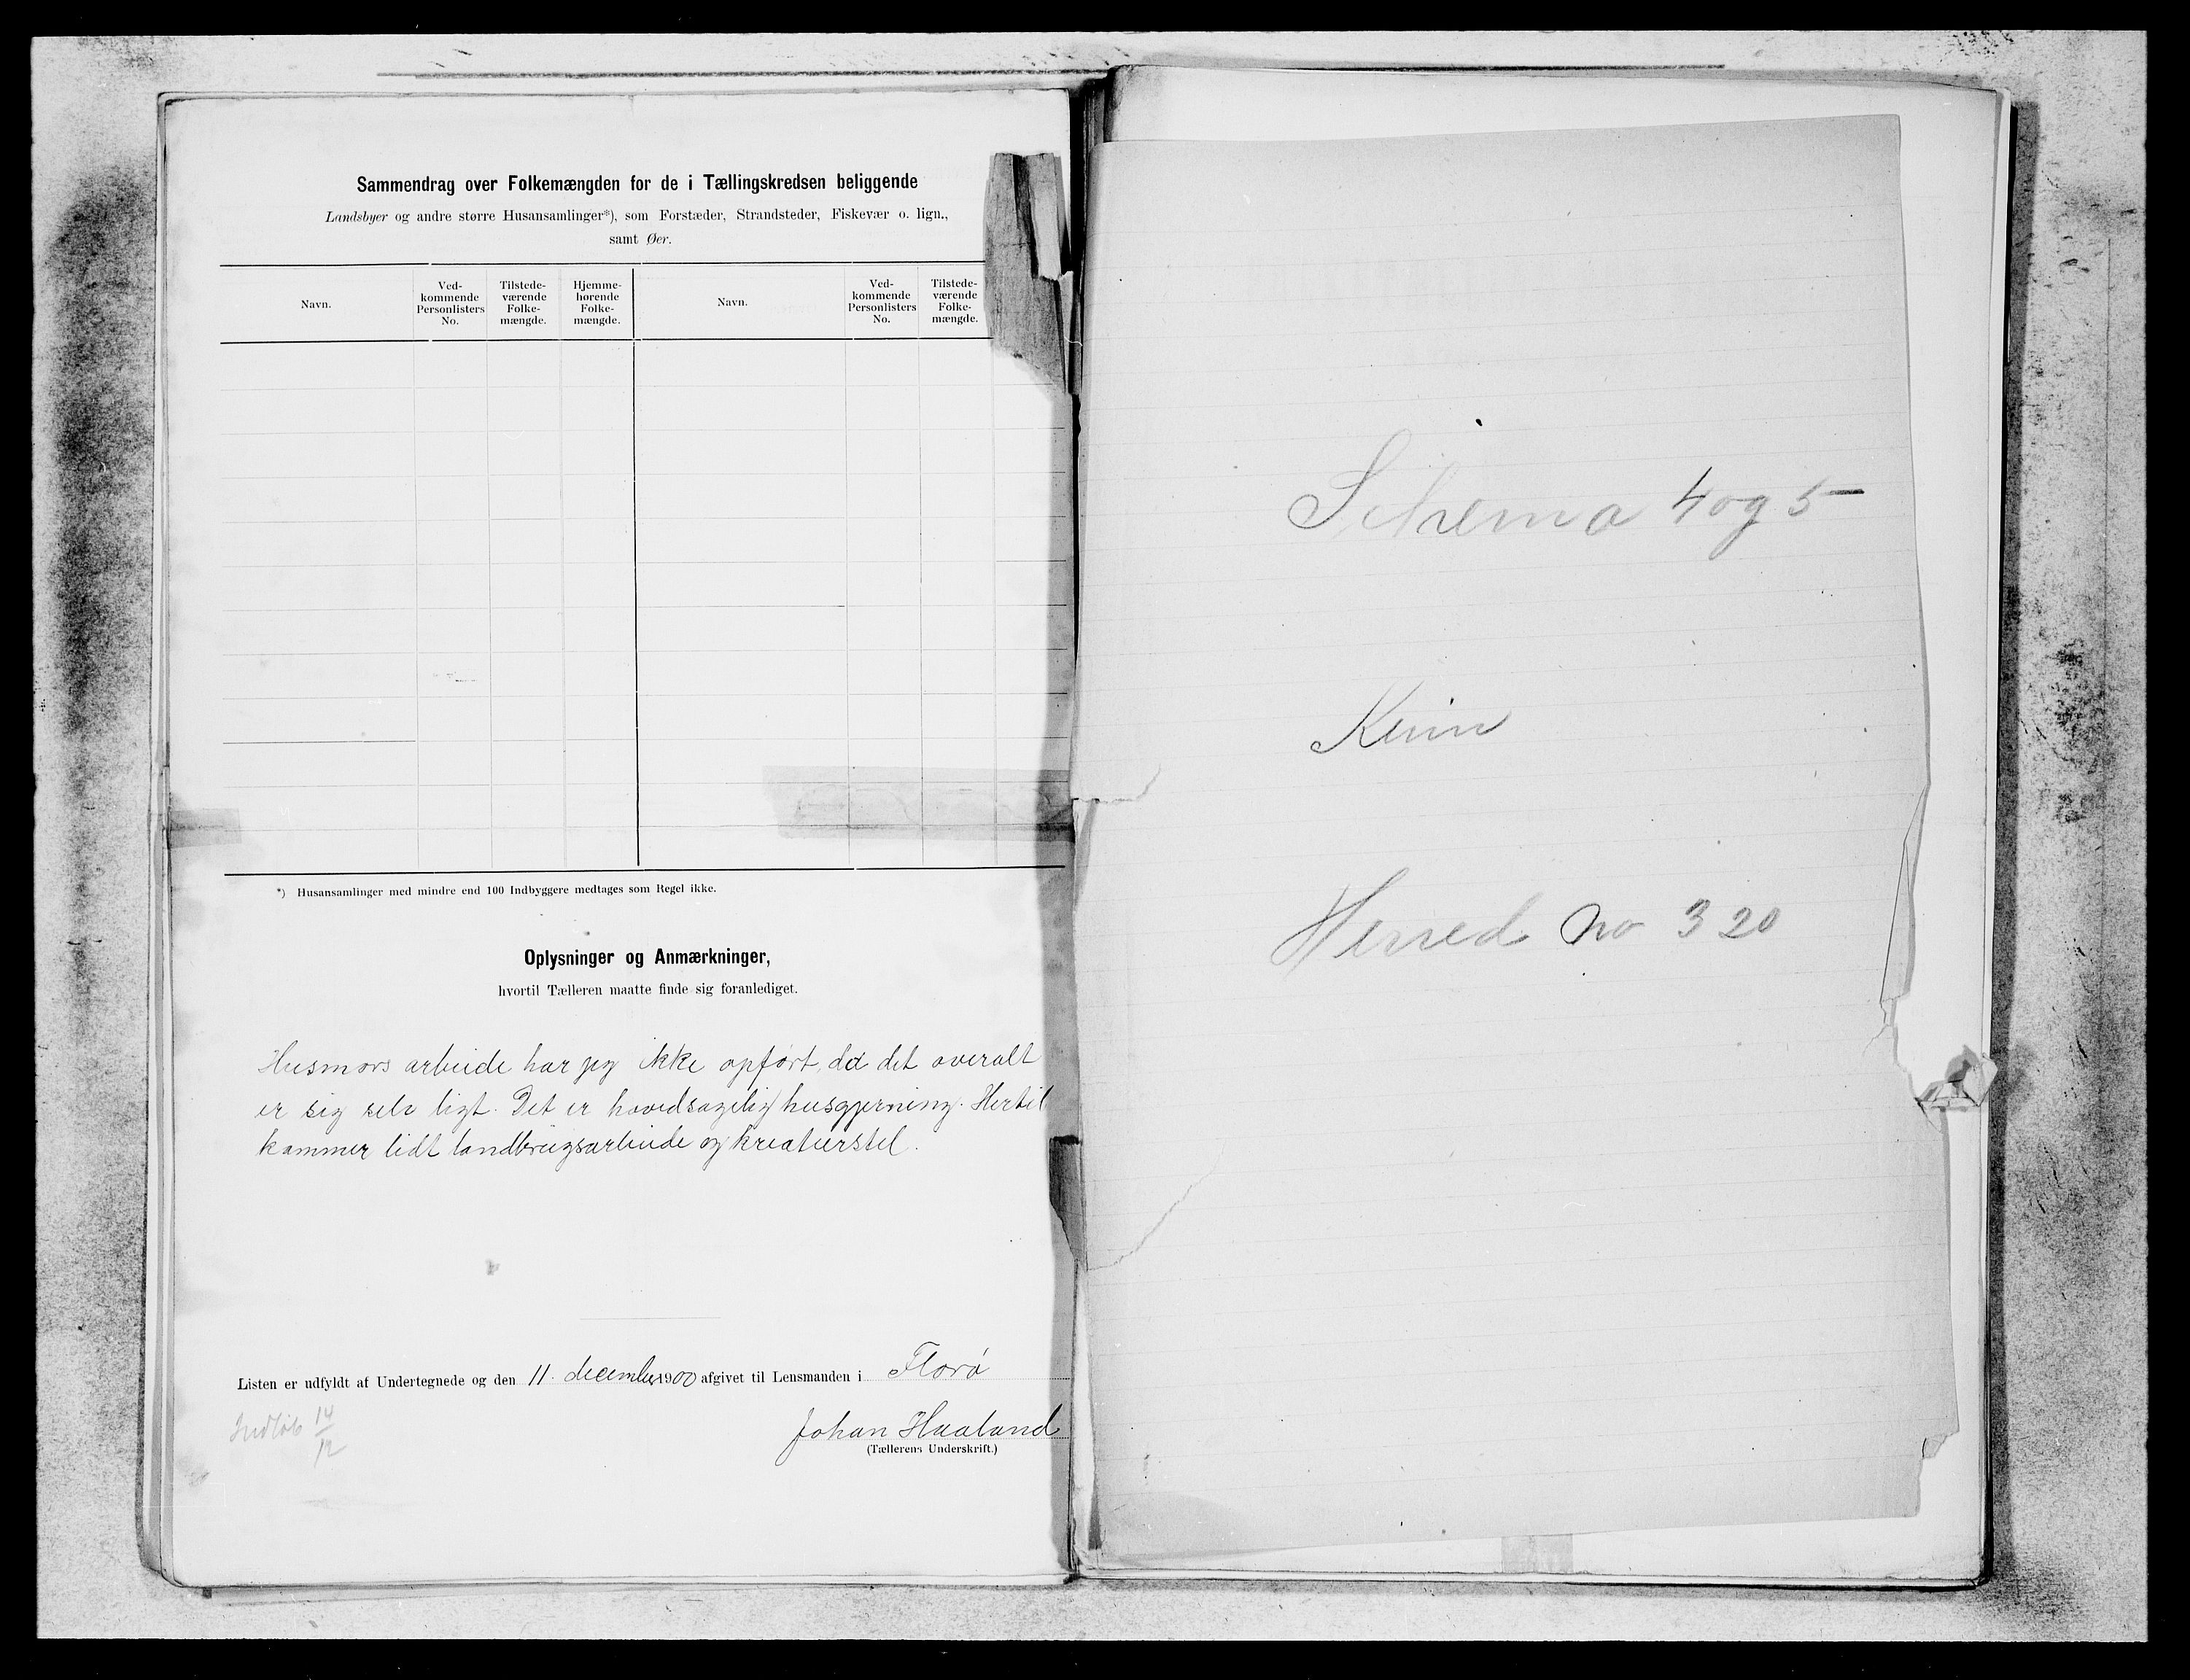 Sammendrag over Folkemængden for de i Tællingskredsen beliggende
Landsbyer og andre større Husansamlinger*), som Forstæder, Strandsteder, Fiskevær o. lign.,
samt Øer.
Navn.
Ved-
kommende
Personlisters
No.
Tilstede-
værende
Folke-
mængde.
Hjemme-
hørende
Folke-
mængde.
Navn.
Ved-
kommende
Personlisters
No.
Tilstede-
værende
Folke-
mængde.
*) Husansamlinger med mindre end 100 Indbyggere medtages som Regel ikke.
Oplysninger og Anmærkninger,
hvortil Tælleren maatte finde sig foranlediget.
Husmors arbeide har jeg ikke opført, da det overalt
er sig selv ligt. Det er hovedsagelig husgjerning. Hertil
kommer lidt landbrugsarbeide og kreaturstel.
Listen er udfyldt af Undertegnede og den 11. december 1900 afgivet til Lensmanden i Florø
14
12
Johan Haaland
(Tællerens Underskrift.)
Schema 4 og 5
Kinn
Herred no 320